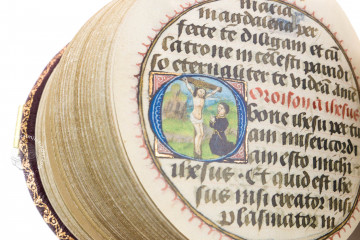 maria
magdalena per
fecte te diligam et cū
latrone in celesti paradi
so eternaliter te videā amē
Oroison a ihesus
one ihesu per tu
am misericordi
am esto michi
ihesus. Et quid est ihe
sus nisi creator m
plasmator m